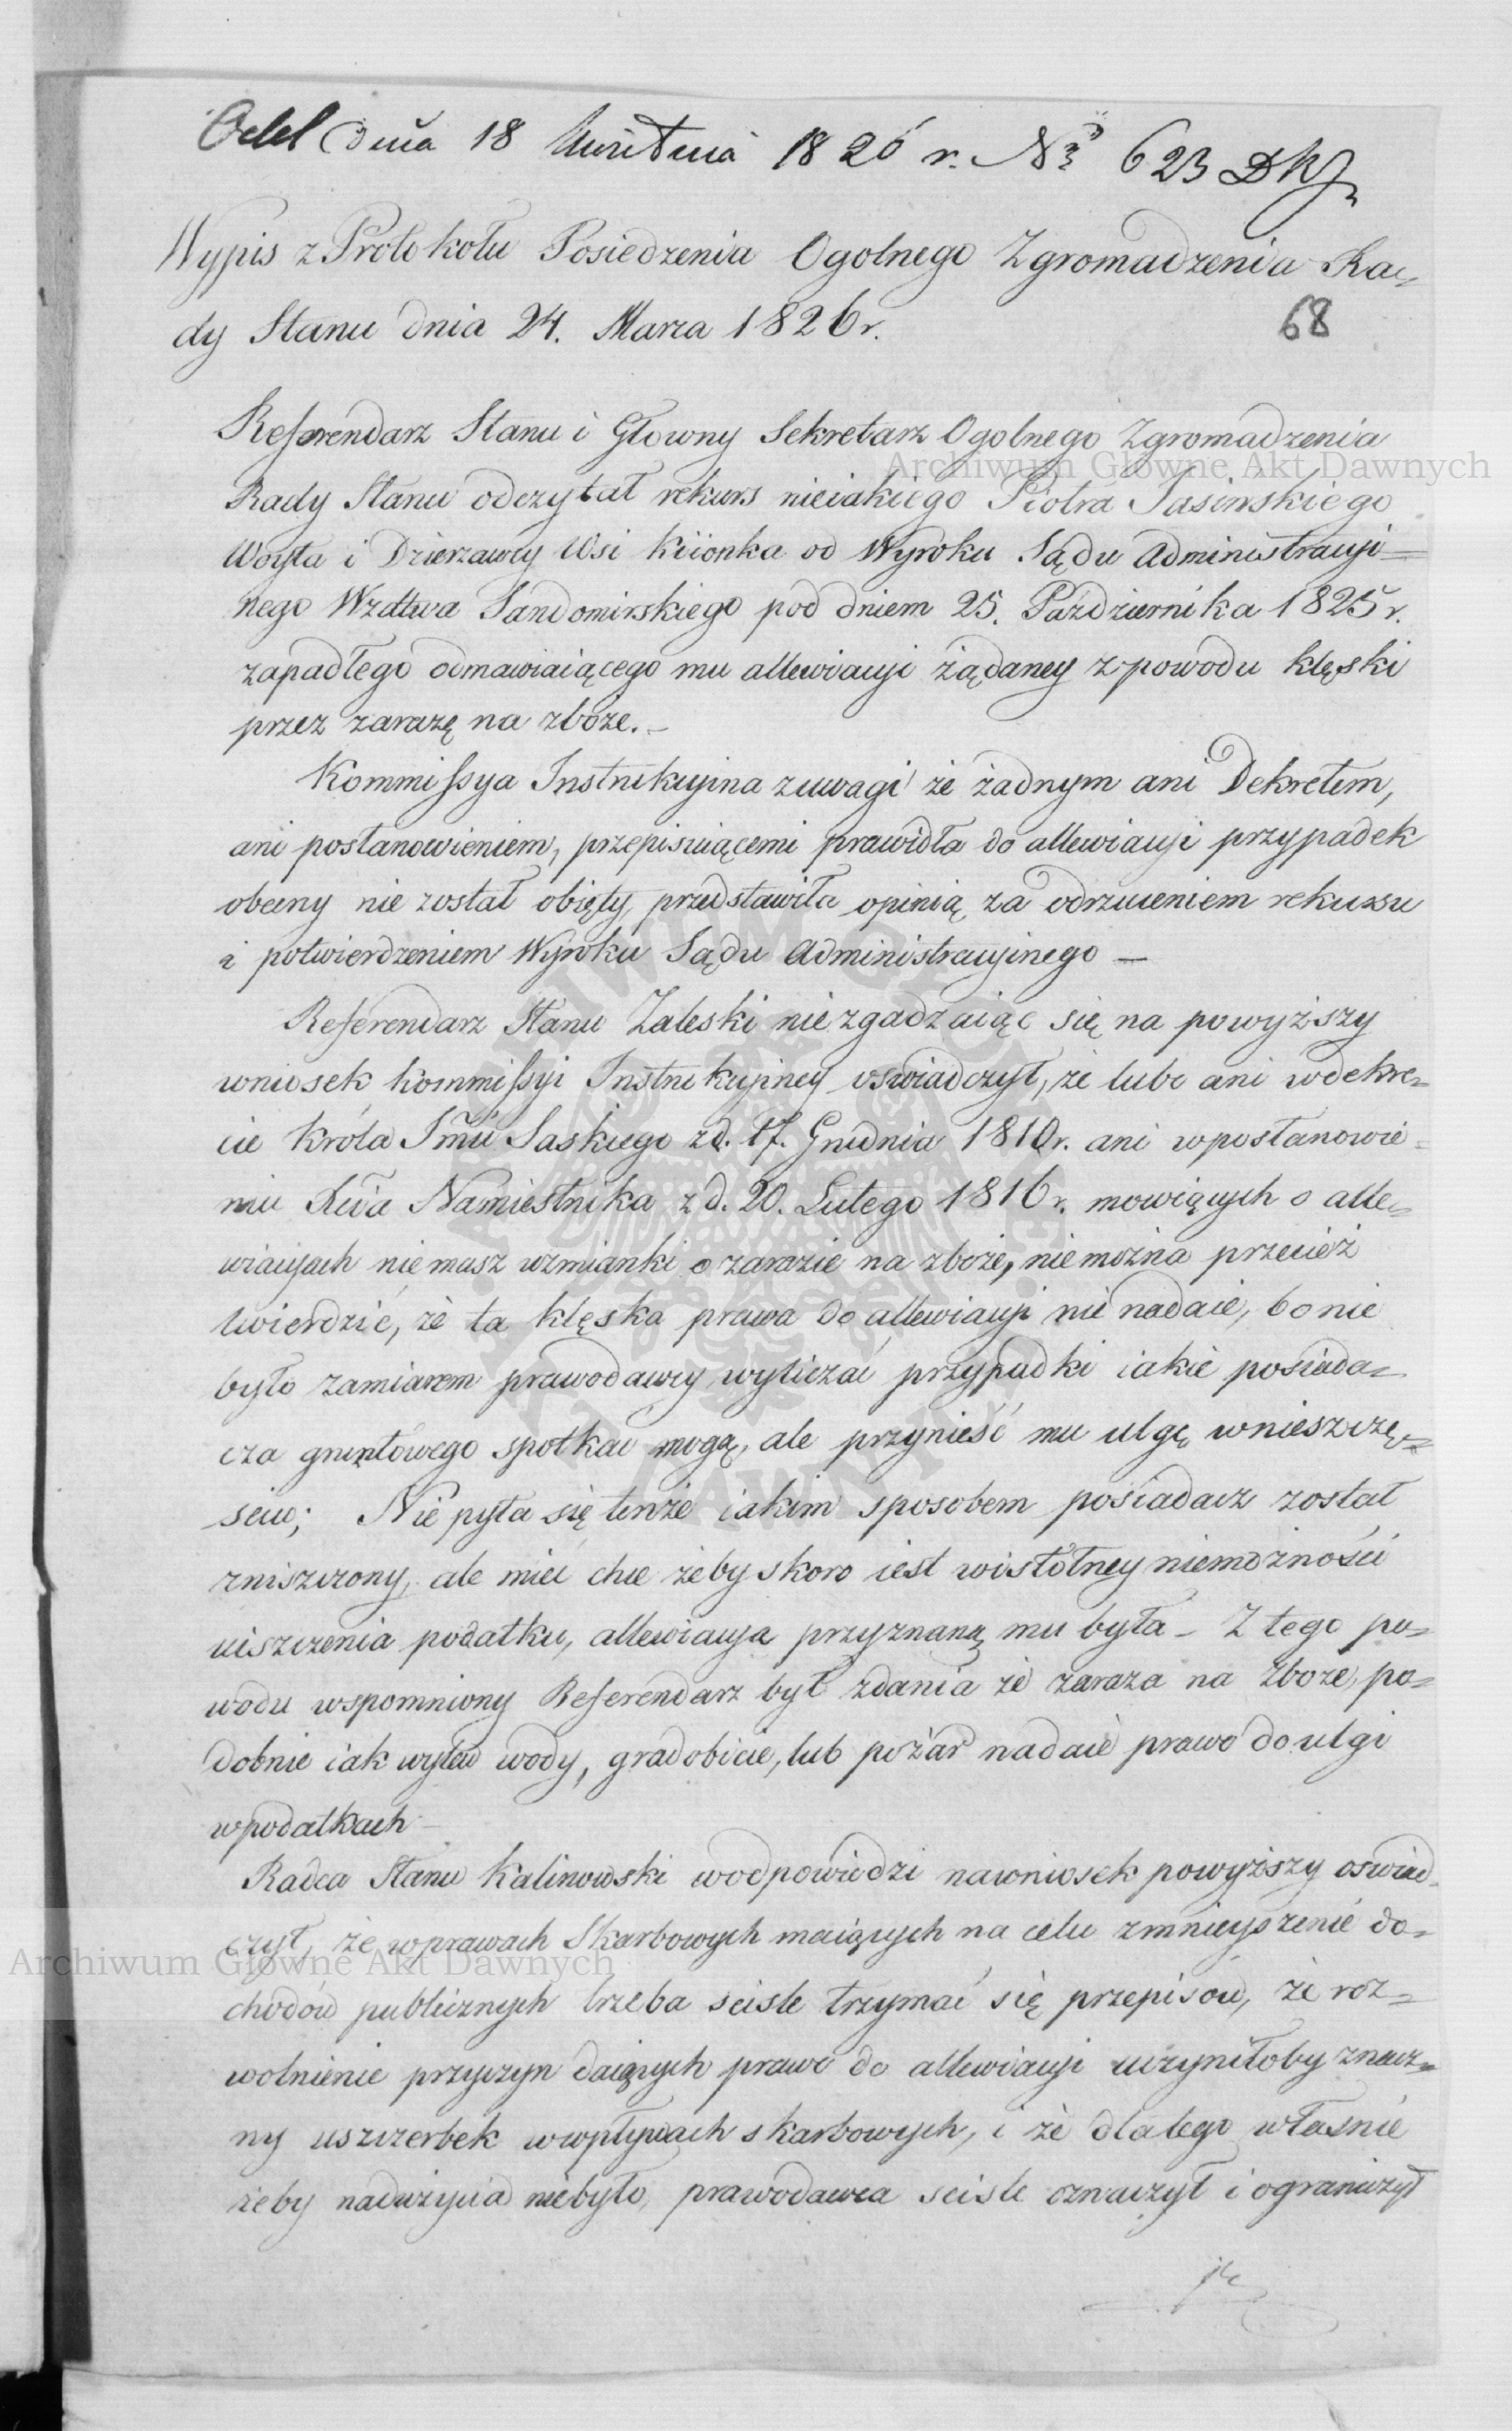 dnia 18 Kwietnia 1826 r. No 623
Wypis z Protokołu Posiedzenia Ogolnego Zgromadzenia Ra-
dy Stanu dnia 24. Marca 1826 r.
68
Referendarz Stanu i Głowny Sekretarz Ogolnego Zgromadzenia
Archiwum Główne Akt Dawnych
Rady Stanu odczytał rekurs nieiakiego Piotra Jasinskiego
Woyta i Dzierzawcy Wsi od Wyroku Sądu Administracyi=
nego Wzdtwa Sandomirskiego pod dniem 25. Pazdziernika 1825 r.
zapadłego odmawiaiącego mu allewiacyi żądaney z powodu klęski
przez zarazę na zboże.-
Kommissya Instrukcyina z uwagi że żadnym ani Dekretem,
ani postanowieniem, przepisuiącemi prawidła do allewiacyi przypadek
obecny nie został obięty, przedstawiła opinią za odrzuceniem rekursu
i potwierdzeniem Wyroku Sądu Administracyinego —
Referendarz Stanu Zaleski nie zgadzaiąc się na powyższy
wniosek Kommissyi Instrukcyiney oswiadczył, że lubo ani w dekre-
cie Króla Jmci Saskiego z d. 17. Grudnia 1810 r. ani w postanowie-
niu Xcia Namiestnika z d. 20. Lutego 1816 r. mowiących o alle-
wiacyach niemasz wzmianki o zarazie na zboże, nie można przecież
twierdzić, że ta klęska prawa do allewiacyi nie nadaie, bo nie
było zamiarem prawodawcy wyliczać przypadki iakie posiada-
cza gruntowego spotkać mogą, ale przynieść mu ulgę w nieszczę-
sciu; Nie pyta się tenże iakim sposobem posiadacz został
zniszczony, ale mieć chce żeby skoro iest w istotney niemożności
uiszczenia podatku, allewiacya przyznaną mu była - Z tego po-
wodu wspomniony Referendarz był zdania że zaraza na zboże, po-
dobnie iak wylew wody, gradobicie, lub pożar nadaie prawo do ulgi
w podatkach -
Radca Stanu Kalinowski w odpowiedzi na wniosek powyższy oswiad-
czył, że w prawach Skarbowych maiących na celu zmnieyszenie do-
Archiwum Główne Akt Dawnych
chodów publicznych trzeba scisle trzymać się przepisów, że roz-
wolnienie przyczyn daiących prawo do allewiacyi uczyniłoby znacz-
ny uszczerbek w wpływach skarbowych, i że dla tego własnie
żeby nadużycia niebyło, prawodawca scisle oznaczył i ograniczył